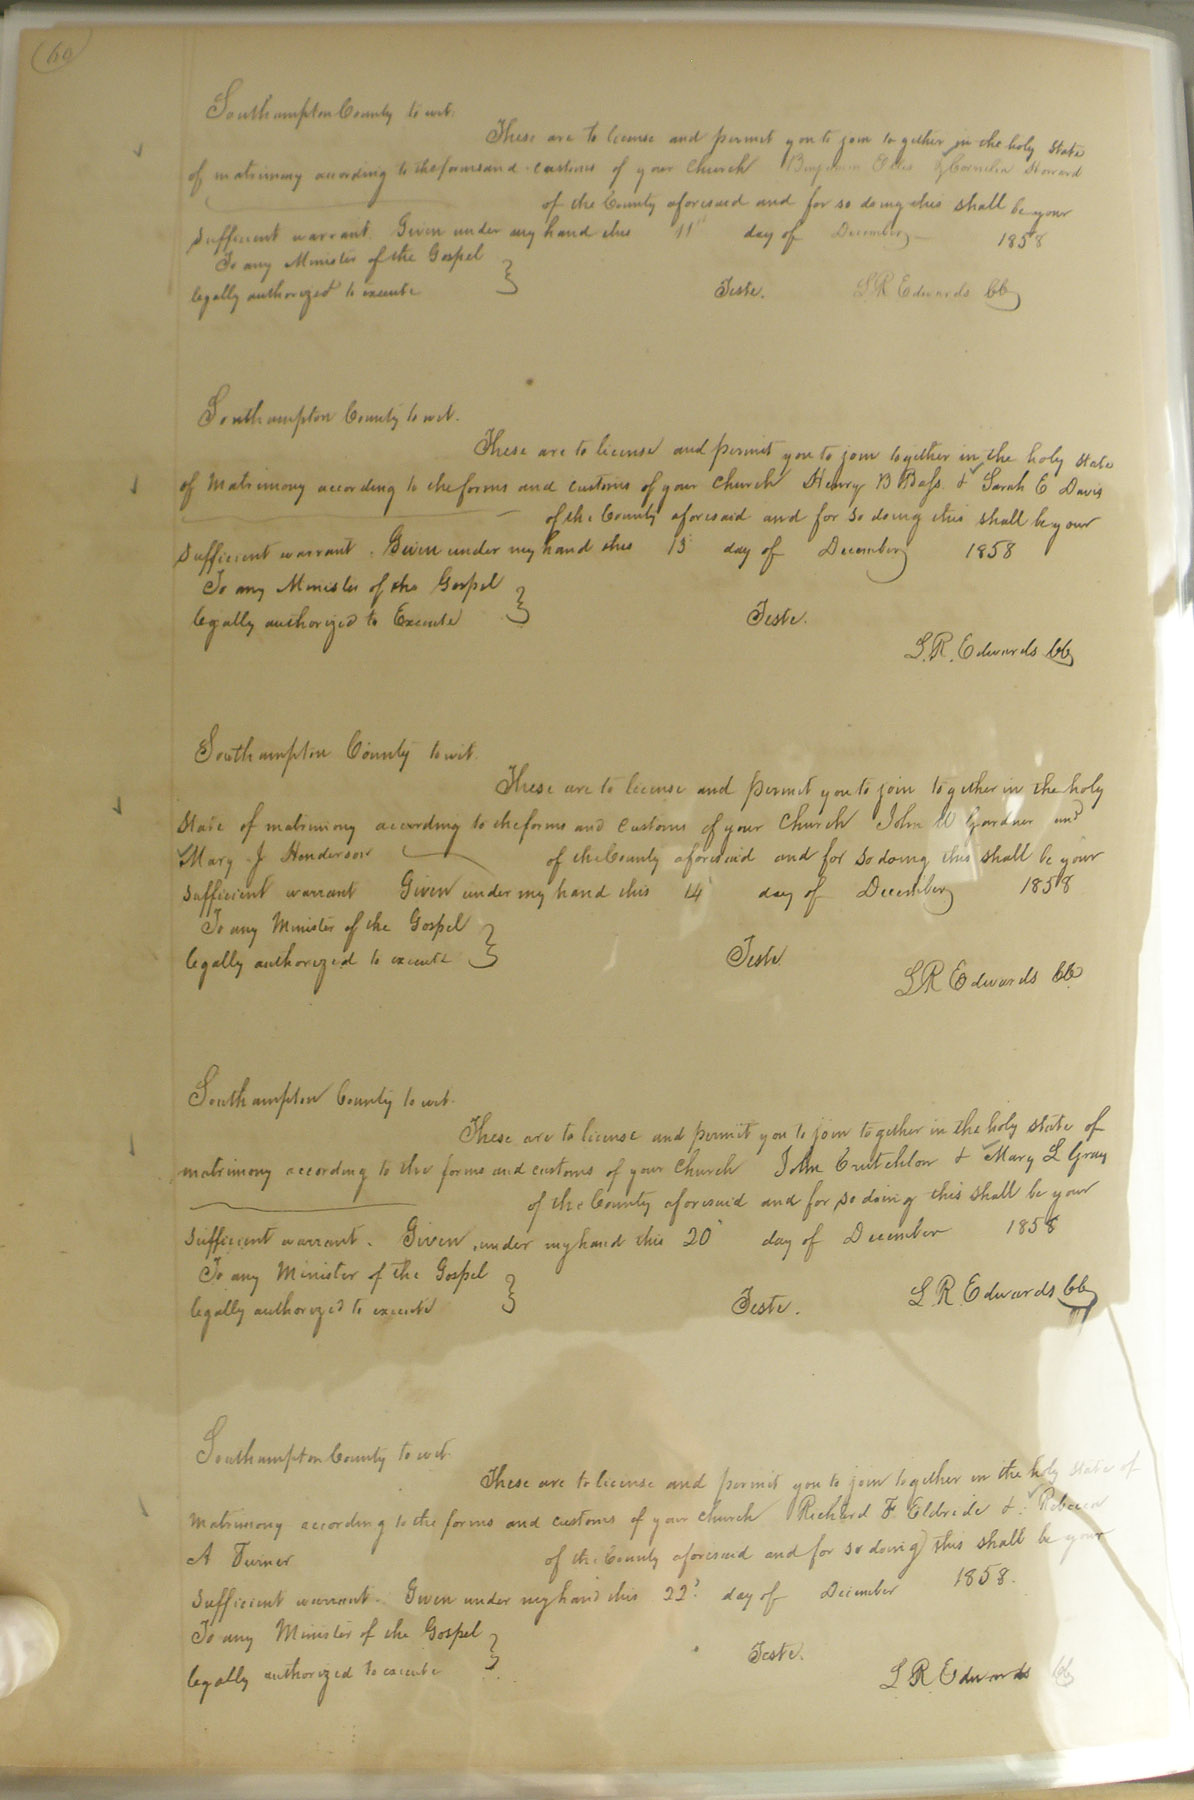 60
Southampton County to wit.
These are to license and permit you to join together in the holy State
of matrimony according to the forms and customs of your Church Benjamin & Cornelia Howard
of the County aforesaid and for so doing this shall be your
Sufficient warrant. Given under my hand this 11" day of December 1858
To any Minister of the Gospel
legally authorized to execute Teste. L R Edwards CC
Southampton County to wit.
These are to license and permit you to join together in the holy State
of Matrimony according to the forms and customs of your Church Henry B Bass & Sarah E Davis
of the County aforesaid and for so doing this shall be your
Sufficient warrant. Given under my hand this 13 day of December 1858
To any Minister of the Gospel
legally authorized to Execute Teste.
L. R. Edwards CC
Southampton County to wit.
These are to license and permit you to join together in the holy
State of matrimony according to the forms and customs of your Church John W Gardner and
Mary J Henderson of the County aforesaid and for so doing this shall be your
Sufficient warrant Given under my hand this 14 day of December 1858
To any Minister of the Gospel
legally authorized to execute Teste
L R Edwards CC
Southampton County to wit.
These are to license and permit you to join together in the holy state of
matrimony according to the forms and customs of your Church John Crutchlow & Mary L Gray
of the County aforesaid and for so doing this shall be your
Sufficient warrant. Given under my hand this 20 day of December 1858
To any Minister of the Gospel
legally authorized to execute Teste. L. R. Edwards CC
Southampton County to wit.
These are to license and permit you to join together in the holy state of
Matrimony according to the forms and customs of your Church Richard F Eldride & Rebecca
A Turner of the County aforesaid and for so doing this shall be your
Sufficient warrant. Given under my hand this 22d day of December 1858.
To any Minister of the Gospel
legally authorized to execute Teste.
L R Edwards CC